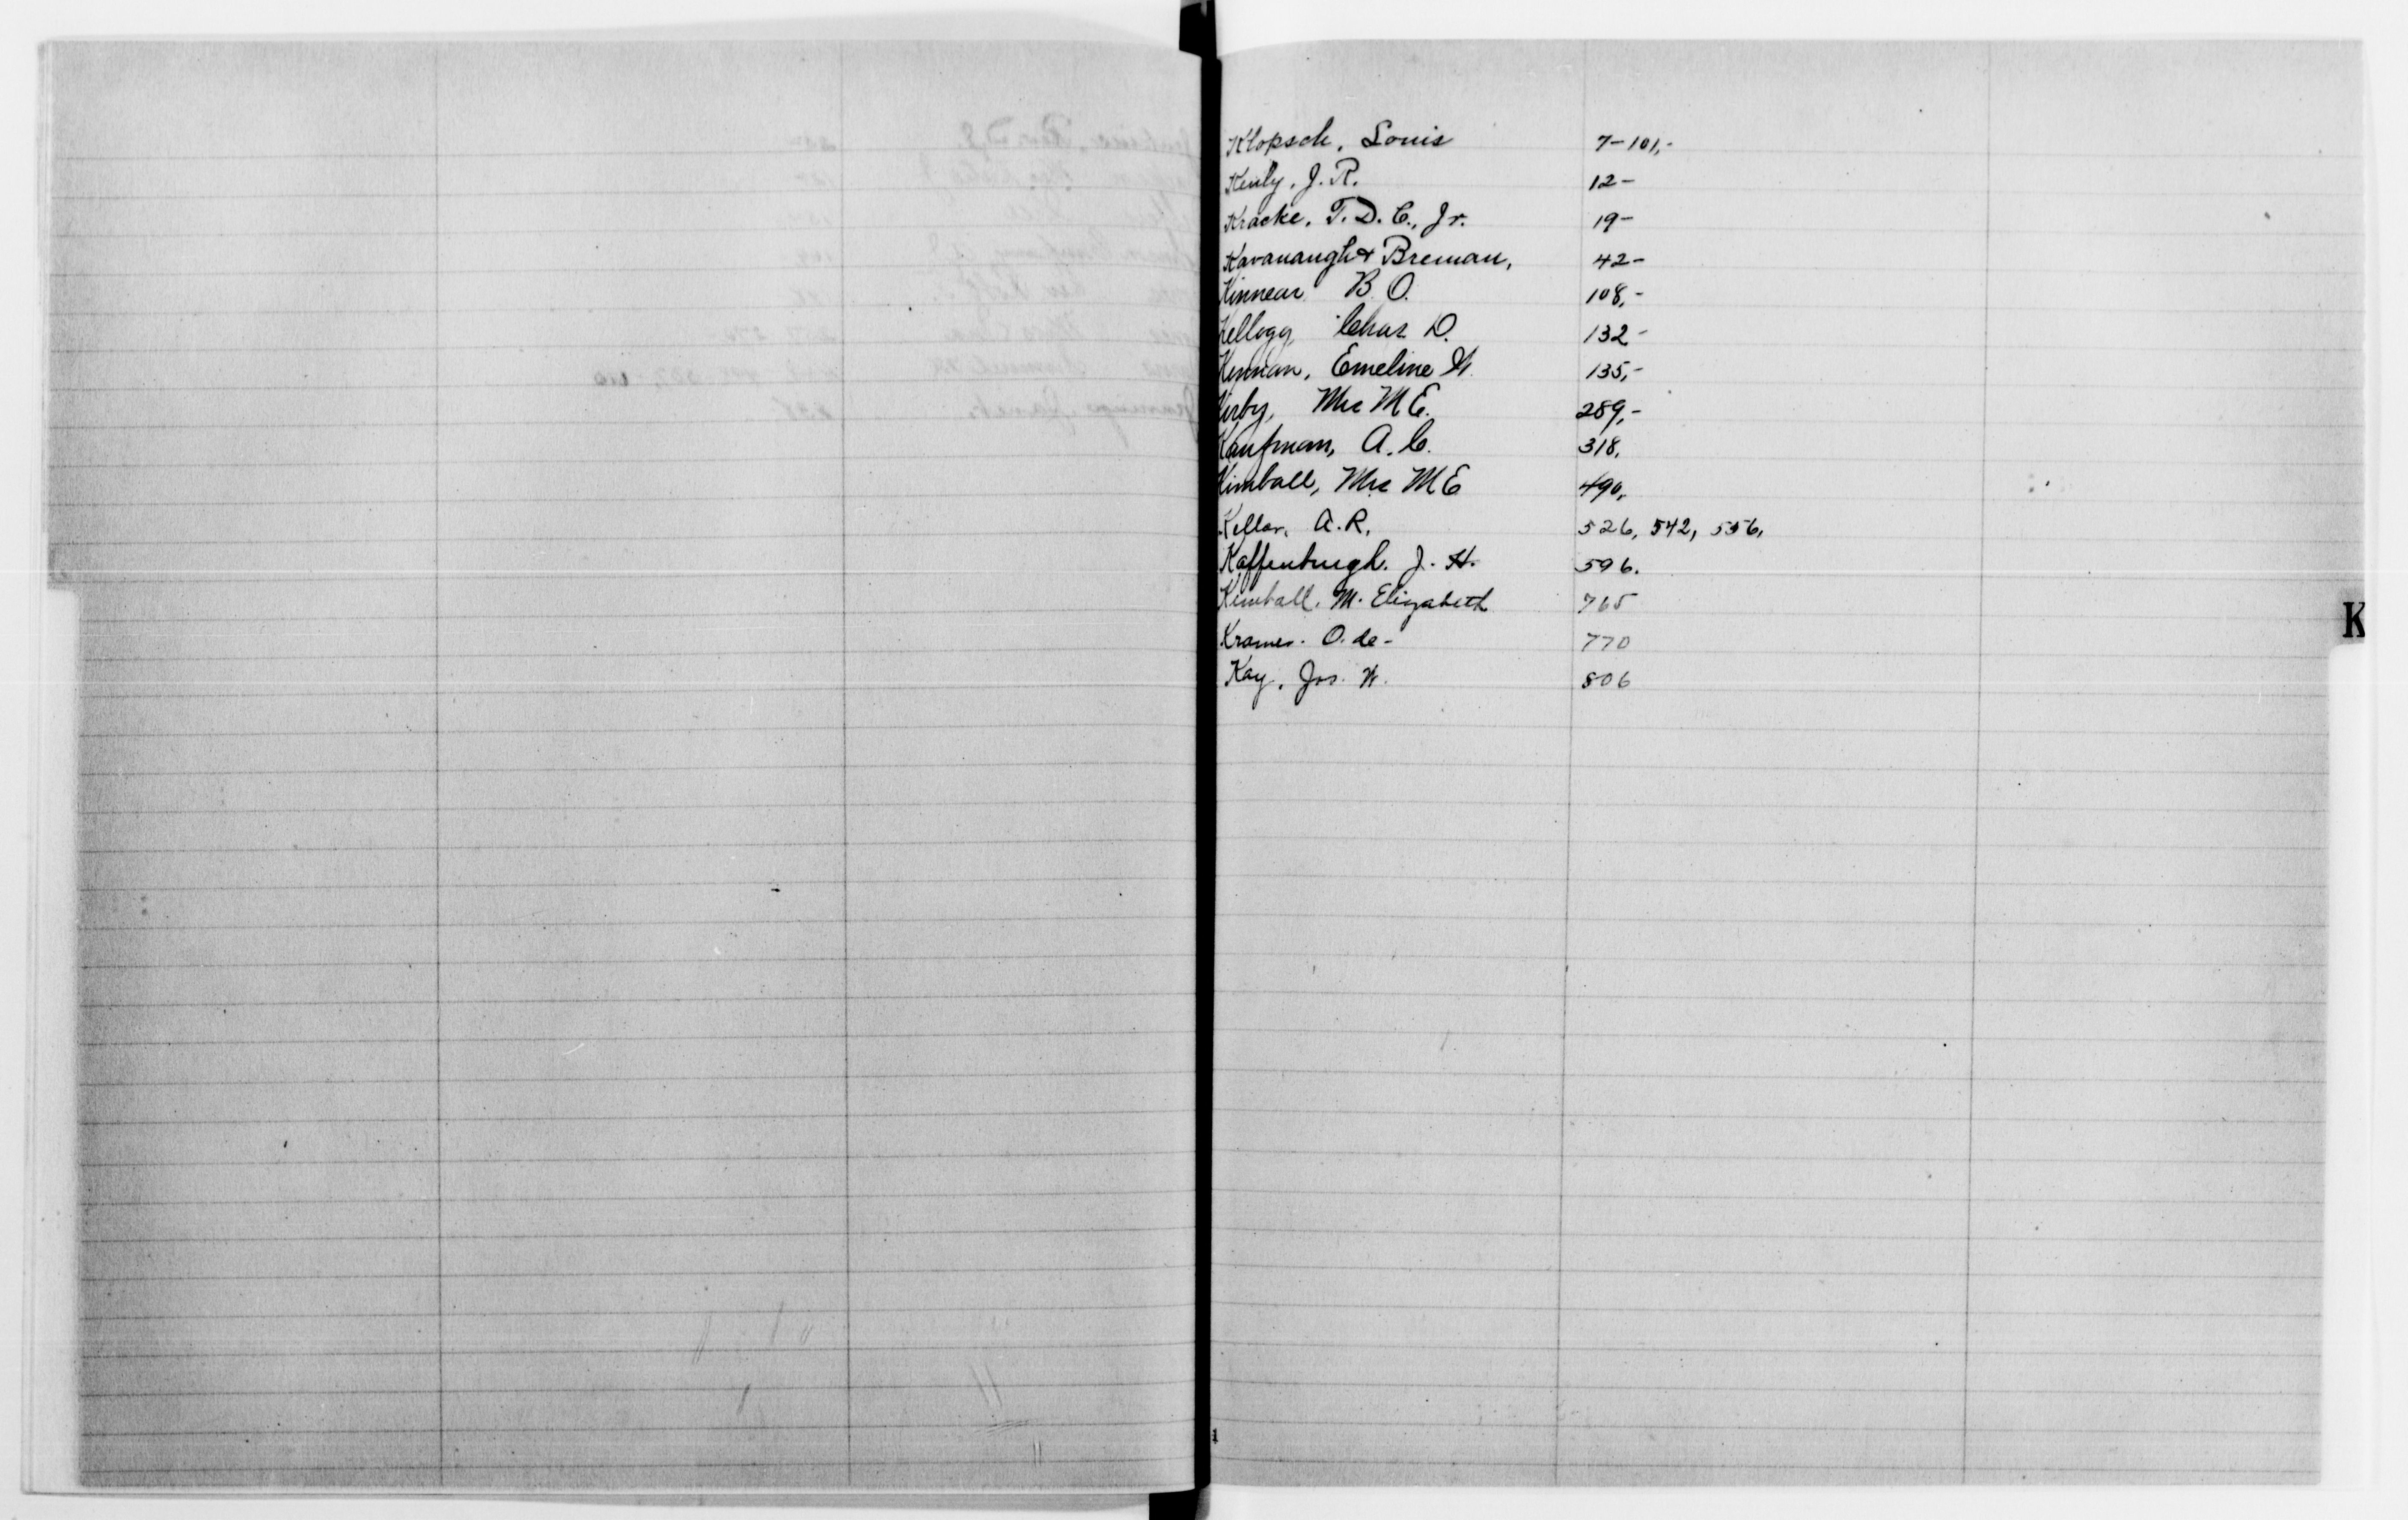 Klopsch, Louis 7-101,-
Kenly, J. R. 12-
Kracke, T. D. C., Jr. 19-
Kavanaugh & Breman, 42-
Kinnear B. O. 108,-
Kellogg, Chas D. 132-
Kennan, Emeline W. 135,-
Kirby, Mrs M E. 289,-
Kaufman, A. C. 318,
Kimball, Mrs M E 490,
Kellar, A. R. 526, 542, 556,
Kaffenburgh. J. H. 596.
Kimball. M. Elizabeth 765
Kramer. O. de- 770
Kay, Jos. W. 806
K